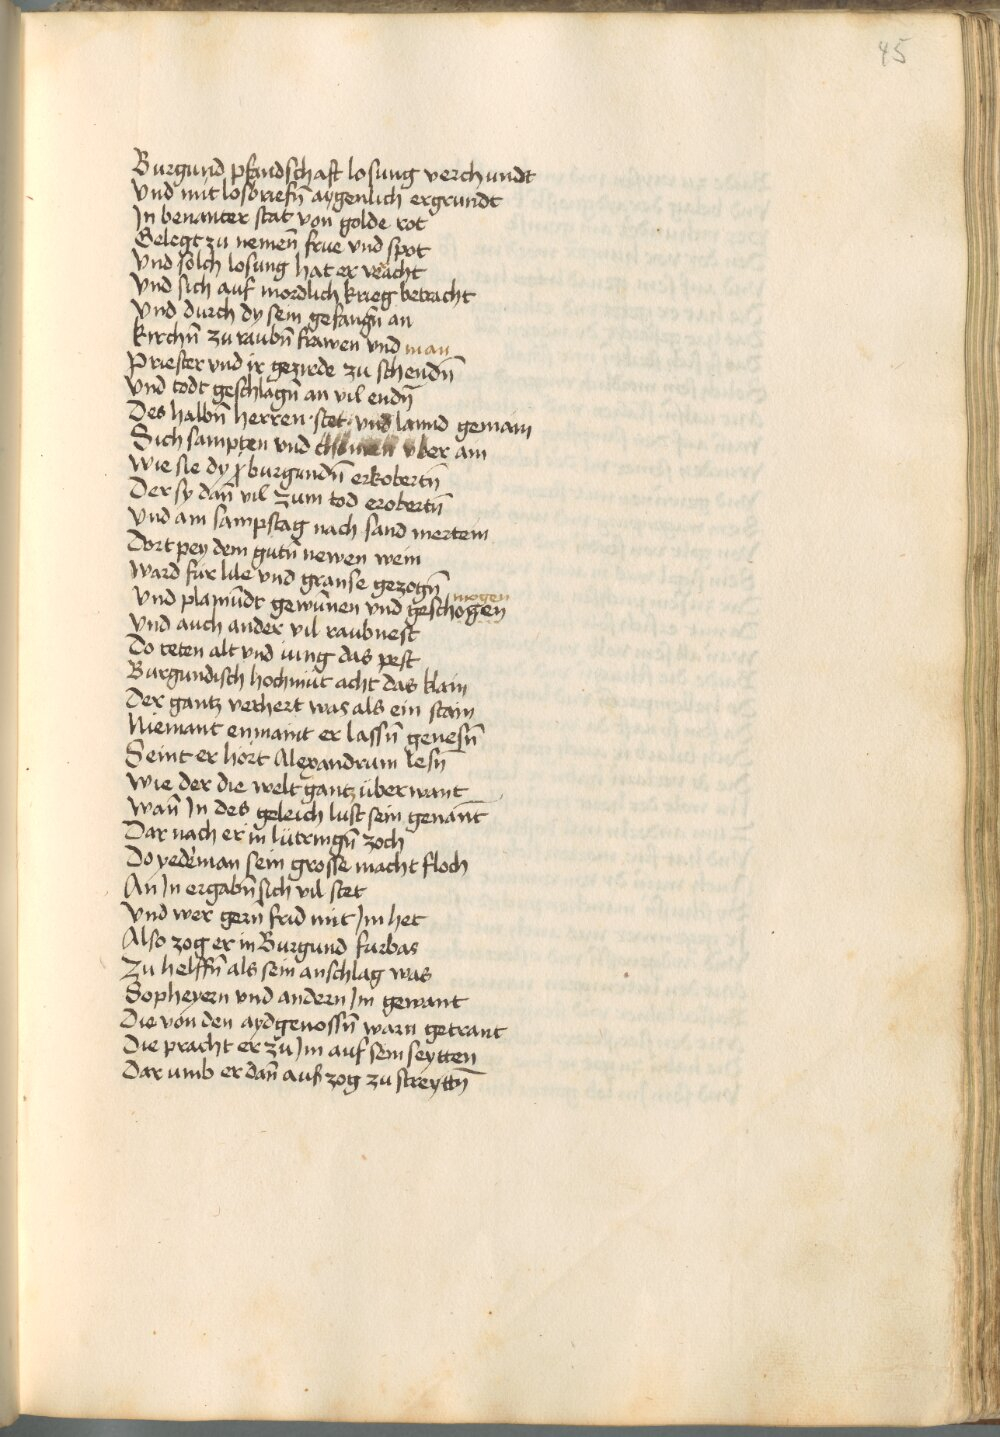 45
Burgund pfandschaft losung verchundt
Vnd mit losbriefn̄ aygenlich ergrundt
Jn benanter stat von golde rot
Gelegt zu nemen̄ frue vnd spot
Vnd solch losung hat er veracht
Vnd sich auf mordlich krieg betracht
Vnd durch dy sein gefangn̄ an
Kirchn̄ zu raubn̄ frawen vnd man
Priester vnd ir gezirde zu schendn̄
Vnd todt geschlagn̄ an vil endn̄
Des halbn̄ herren · stet · vnd lannd gemain
Sich sampten vnd vber ain
Wie sie dy burgundn̄ erkobertn̄
Der sy dan̄ vil zum tod erobertn̄
Vnd am sampstag nach sand mertein
Dort pey dem gutn̄ newen wein
Ward für lile vnd granse gezogn̄
mogen
Vnd plamūdt gewūnen vnd geschogen
Vnd auch ander vil raubnest
Do teten alt vnd iung das pest
Burgundisch hochmüt acht das klain
Der gantz verhert was als ein stain
Niemant enmaint er lassn̄ genesn̄
Seint er hort Alexandrum lesn̄
Wie der die welt gantz überwant
Wan̄ Jn des geleich lust sein genānt
Dar nach er in lütringn̄ zoch
Do yederman sein grosse macht floch
An Jn ergabn̄ sich vil stet
Vnd wer gern frid mit Jm het
Also zog er in Burgund furbas
Zu helffn̄ als sein anschlag was
Sopheyern vnd andern Jm gewant
Die von den aydgenossn̄ warn getrant
Die pracht er zu Jm auf sein seytten
Dar vmb er dan̄ auf zog zu streyttn̄